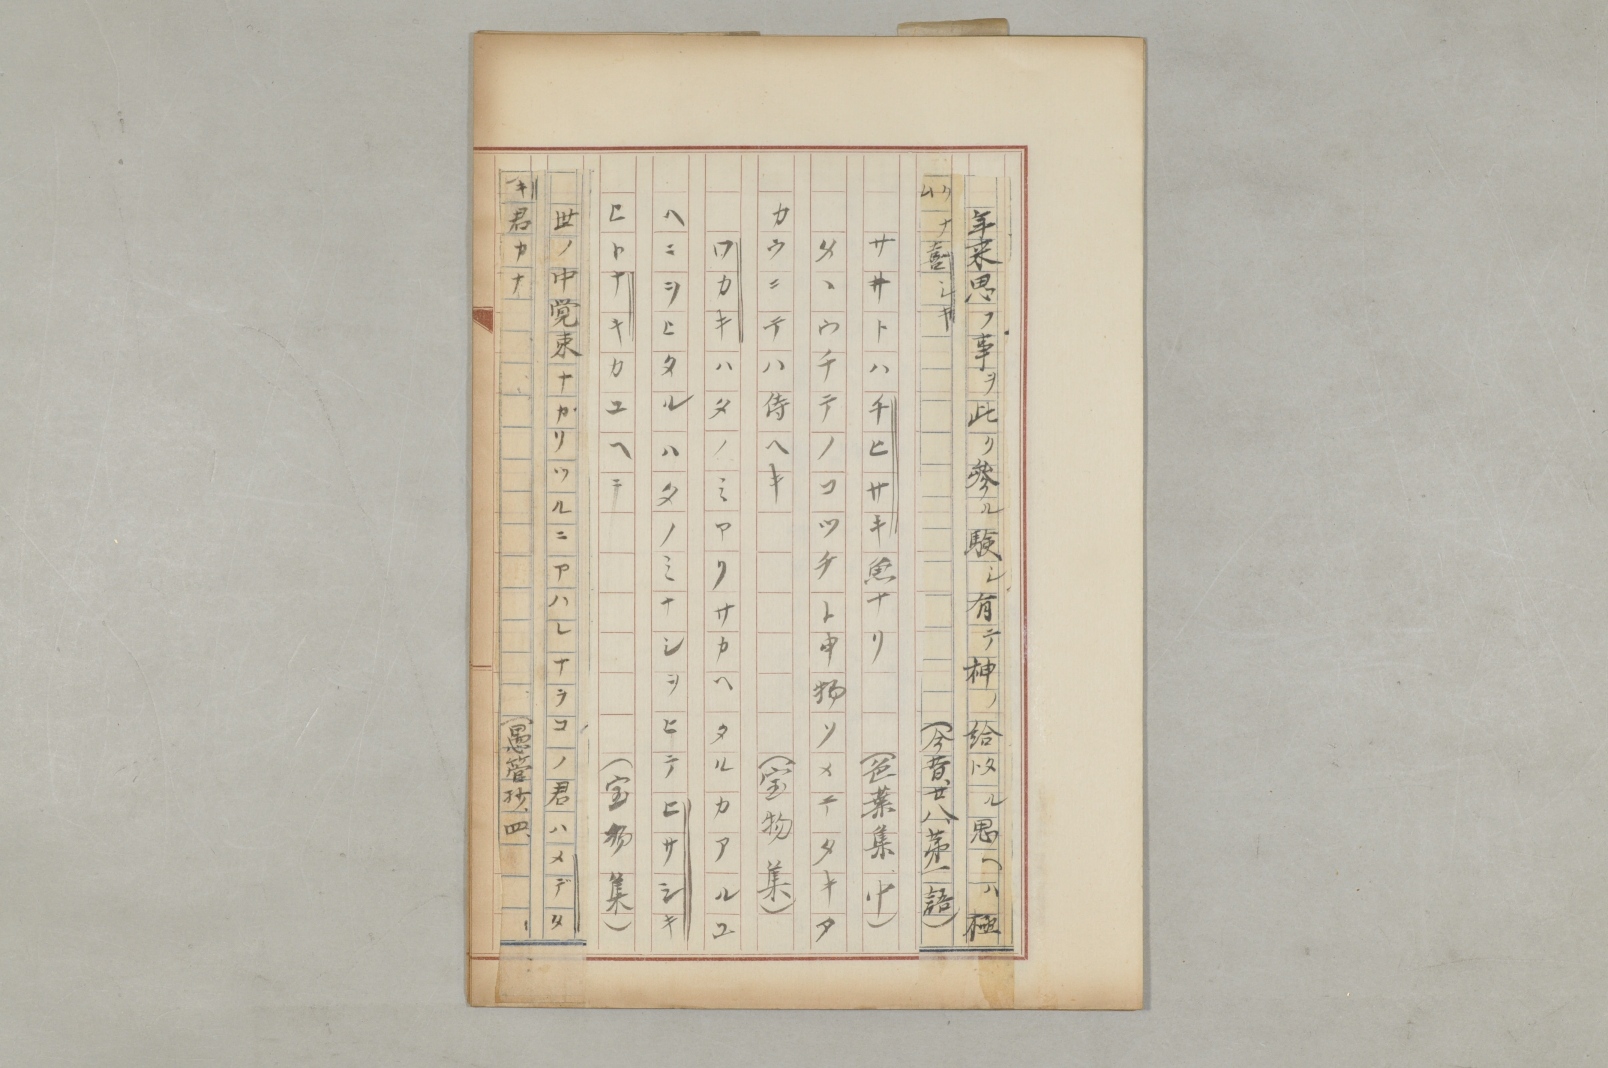 年来思フ事ヲ此リ参ル験シ有テ神ノ給タル思ヘハ極
ムクナ喜シキ(今昔廿八第一語)
サ井トハチヒサキ魚ナリ(色葉集中)
タヽウチテノコツチト申物ソメテタキタ
カウニテハ侍ヘキ(宝物集)
ワカキハタノミアリサカヘタルカアルユ
ヘニヲヒタルハタノミナシヲヒテヒサシキ
ヒトナキカユヘニ(宝物集)
世ノ中覚束ナカリツルニアハレナラコノ君ハメデタ
キ君カナ(愚管抄、四、